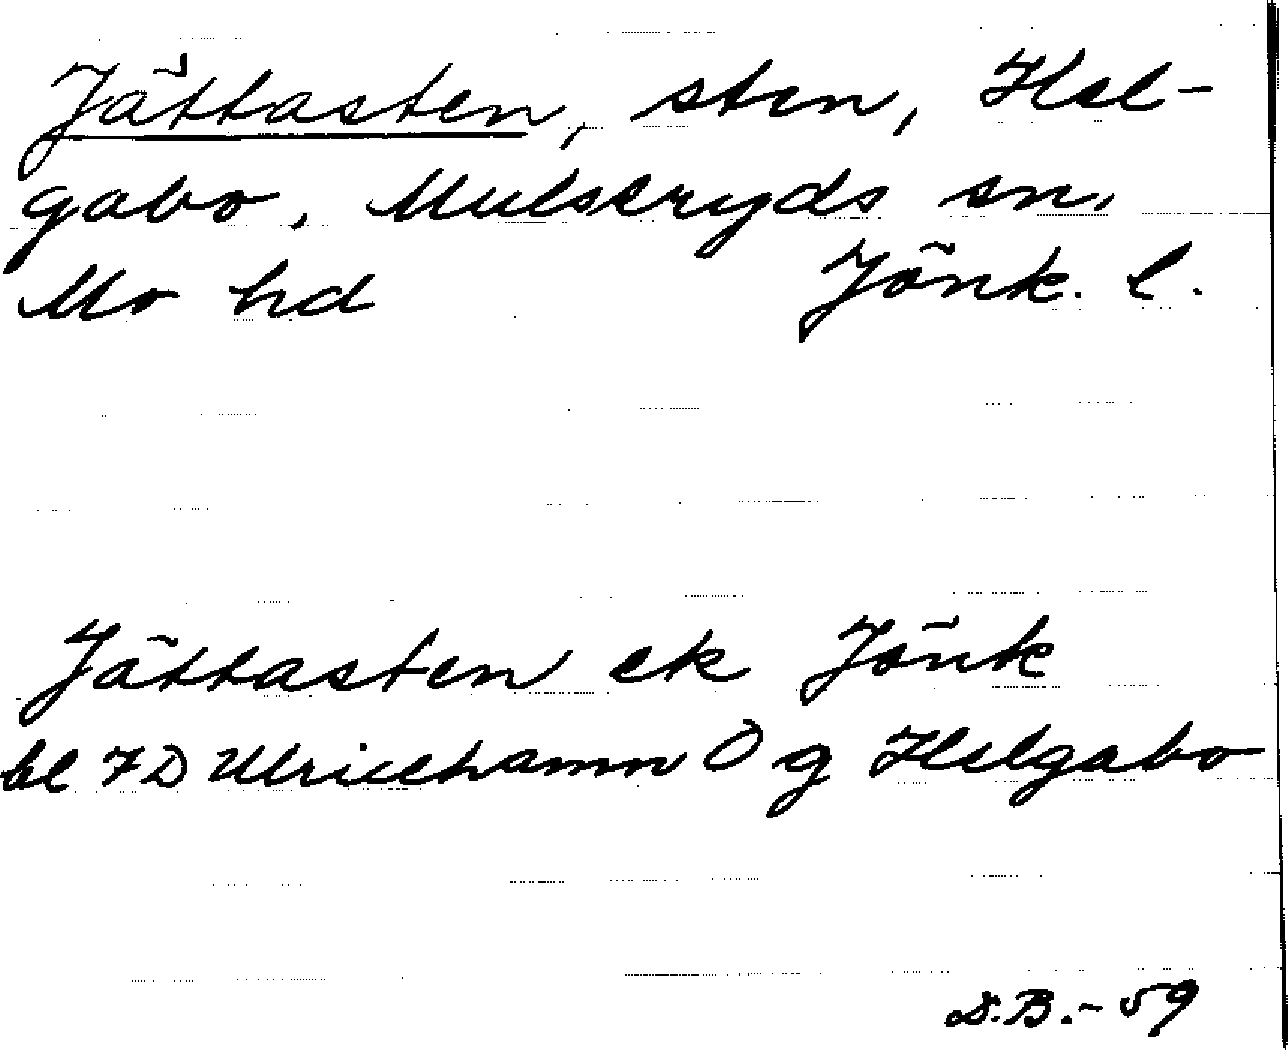 Jättasten, sten, Hel-
gabo, Mulseryds sn.
Mo hd Jönk. l.
Jättasten ek Jönk
bl 7D Ulricehamn O g Helgabo
D.B.-59